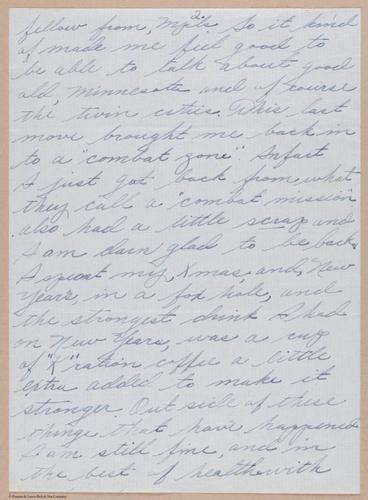 2.
fellow from, Mpls. So it kind
of made me feel good to
be able to talk about good
old, Minnesota and of course
the twin cities. This last
move brought me back in
to a "combat zone". Infact
I just got back from what
they call a "combat mission"
also had a little scrap and
I am darn glad to be back.
I spent my, Xmas, and, New
Years, in a fox hole, and
the strongest drink I had
on New Years, was a cup
of "K" ration coffee a little
extra added to make it
stronger. Out side of these
things that have happened
I am still fine, and in
the best of health with